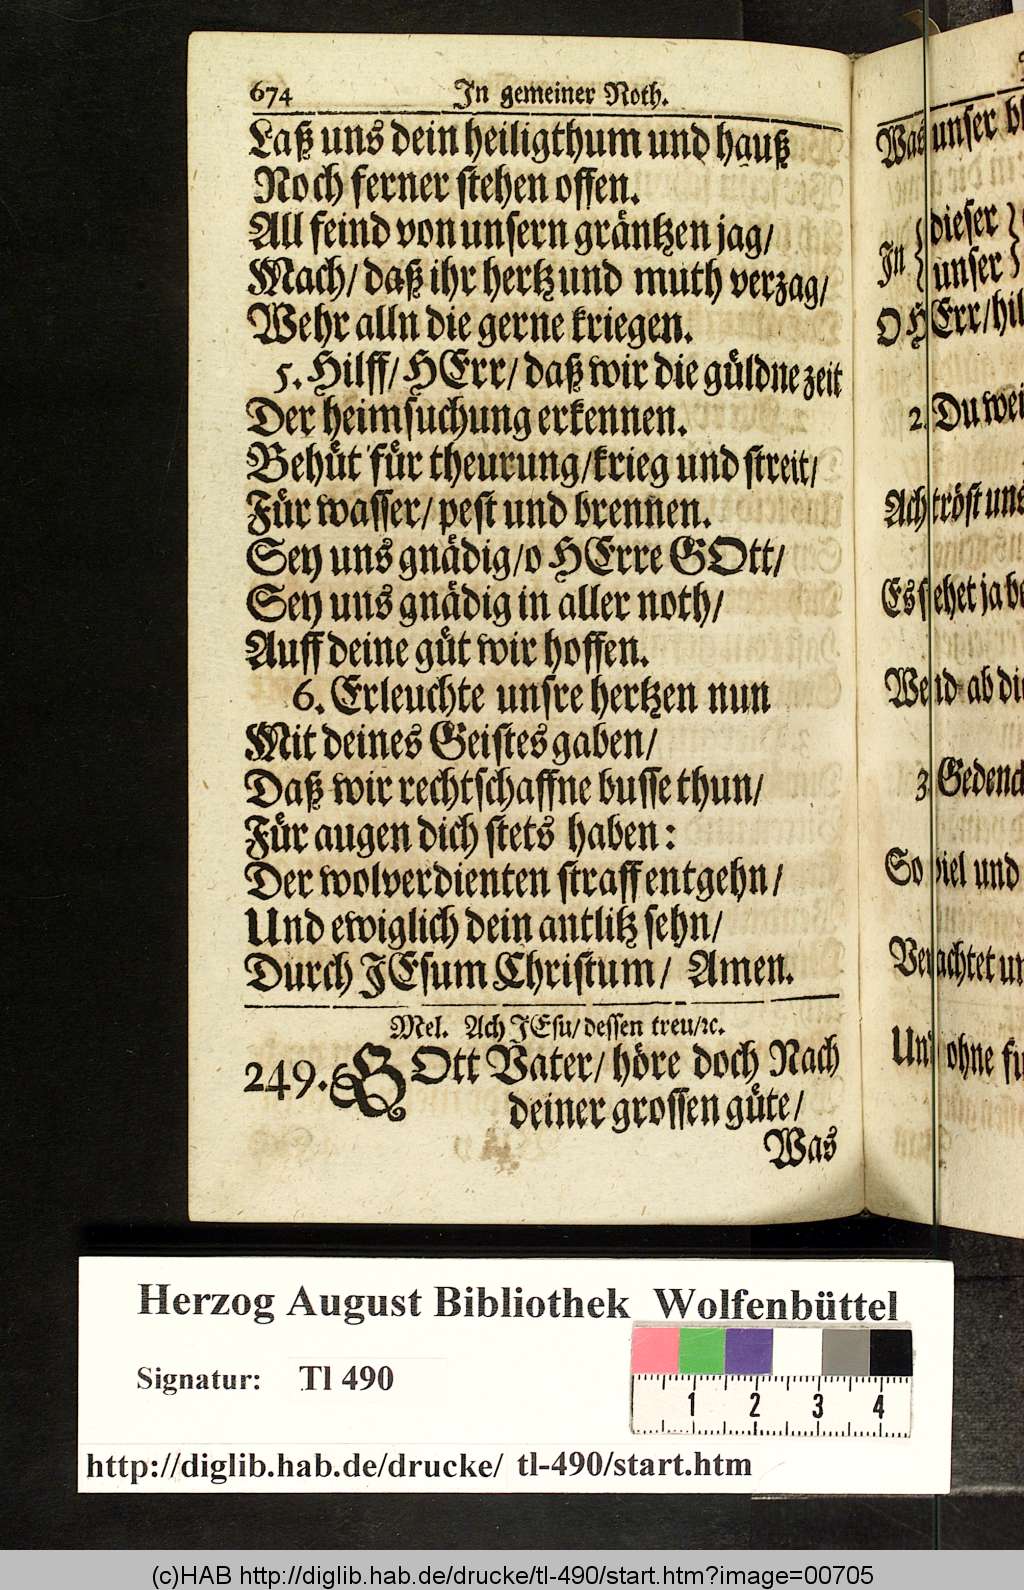 674 In gemeiner Noth.
Laß uns dein heiligthum und hauß
Noch ferner stehen offen.
All feind von unsern gräntzen jag/
Mach/ daß ihr hertz und muth verzag/
Wehr alln die gerne kriegen.
5. Hilff/ HErr/ daß wir die güldne zeit
Der heimsuchung erkennen.
Behüt für theurung/ krieg und streit/
Für wasser/ pest und brennen.
Sey uns gnädig/ o HErre GOtt/
Sey uns gnädig in aller noth/
Auff deine güt wir hoffen.
6. Erleuchte unsre hertzen nun
Mit deines Geistes gaben/
Daß wir rechtschaffne busse thun/
Für augen dich stets haben:
Der wolverdienten straff entgehn/
Und ewiglich dein antlitz sehn/
Durch JEsum Christum/ Amen.
Mel. Ach JEsu/ dessen treu/ꝛc.
249. GOtt Vater/ höre doch Nach
deiner grossen güte/
Was
Was unser
In { dieser }
unser }
O HErr/ hil
2. Du wei
Ach tröst uns
Es stehet ja be
Wend ab die
3. Gedenck
So viel und
Verachtet un
Und ohne fu
Herzog August Bibliothek Wolfenbüttel
Signatur: Tl 490
1 2 3 4
http://diglib.hab.de/drucke/ tl-490/start.htm
(c)HAB http://diglib.hab.de/drucke/tl-490/start.htm?image=00705